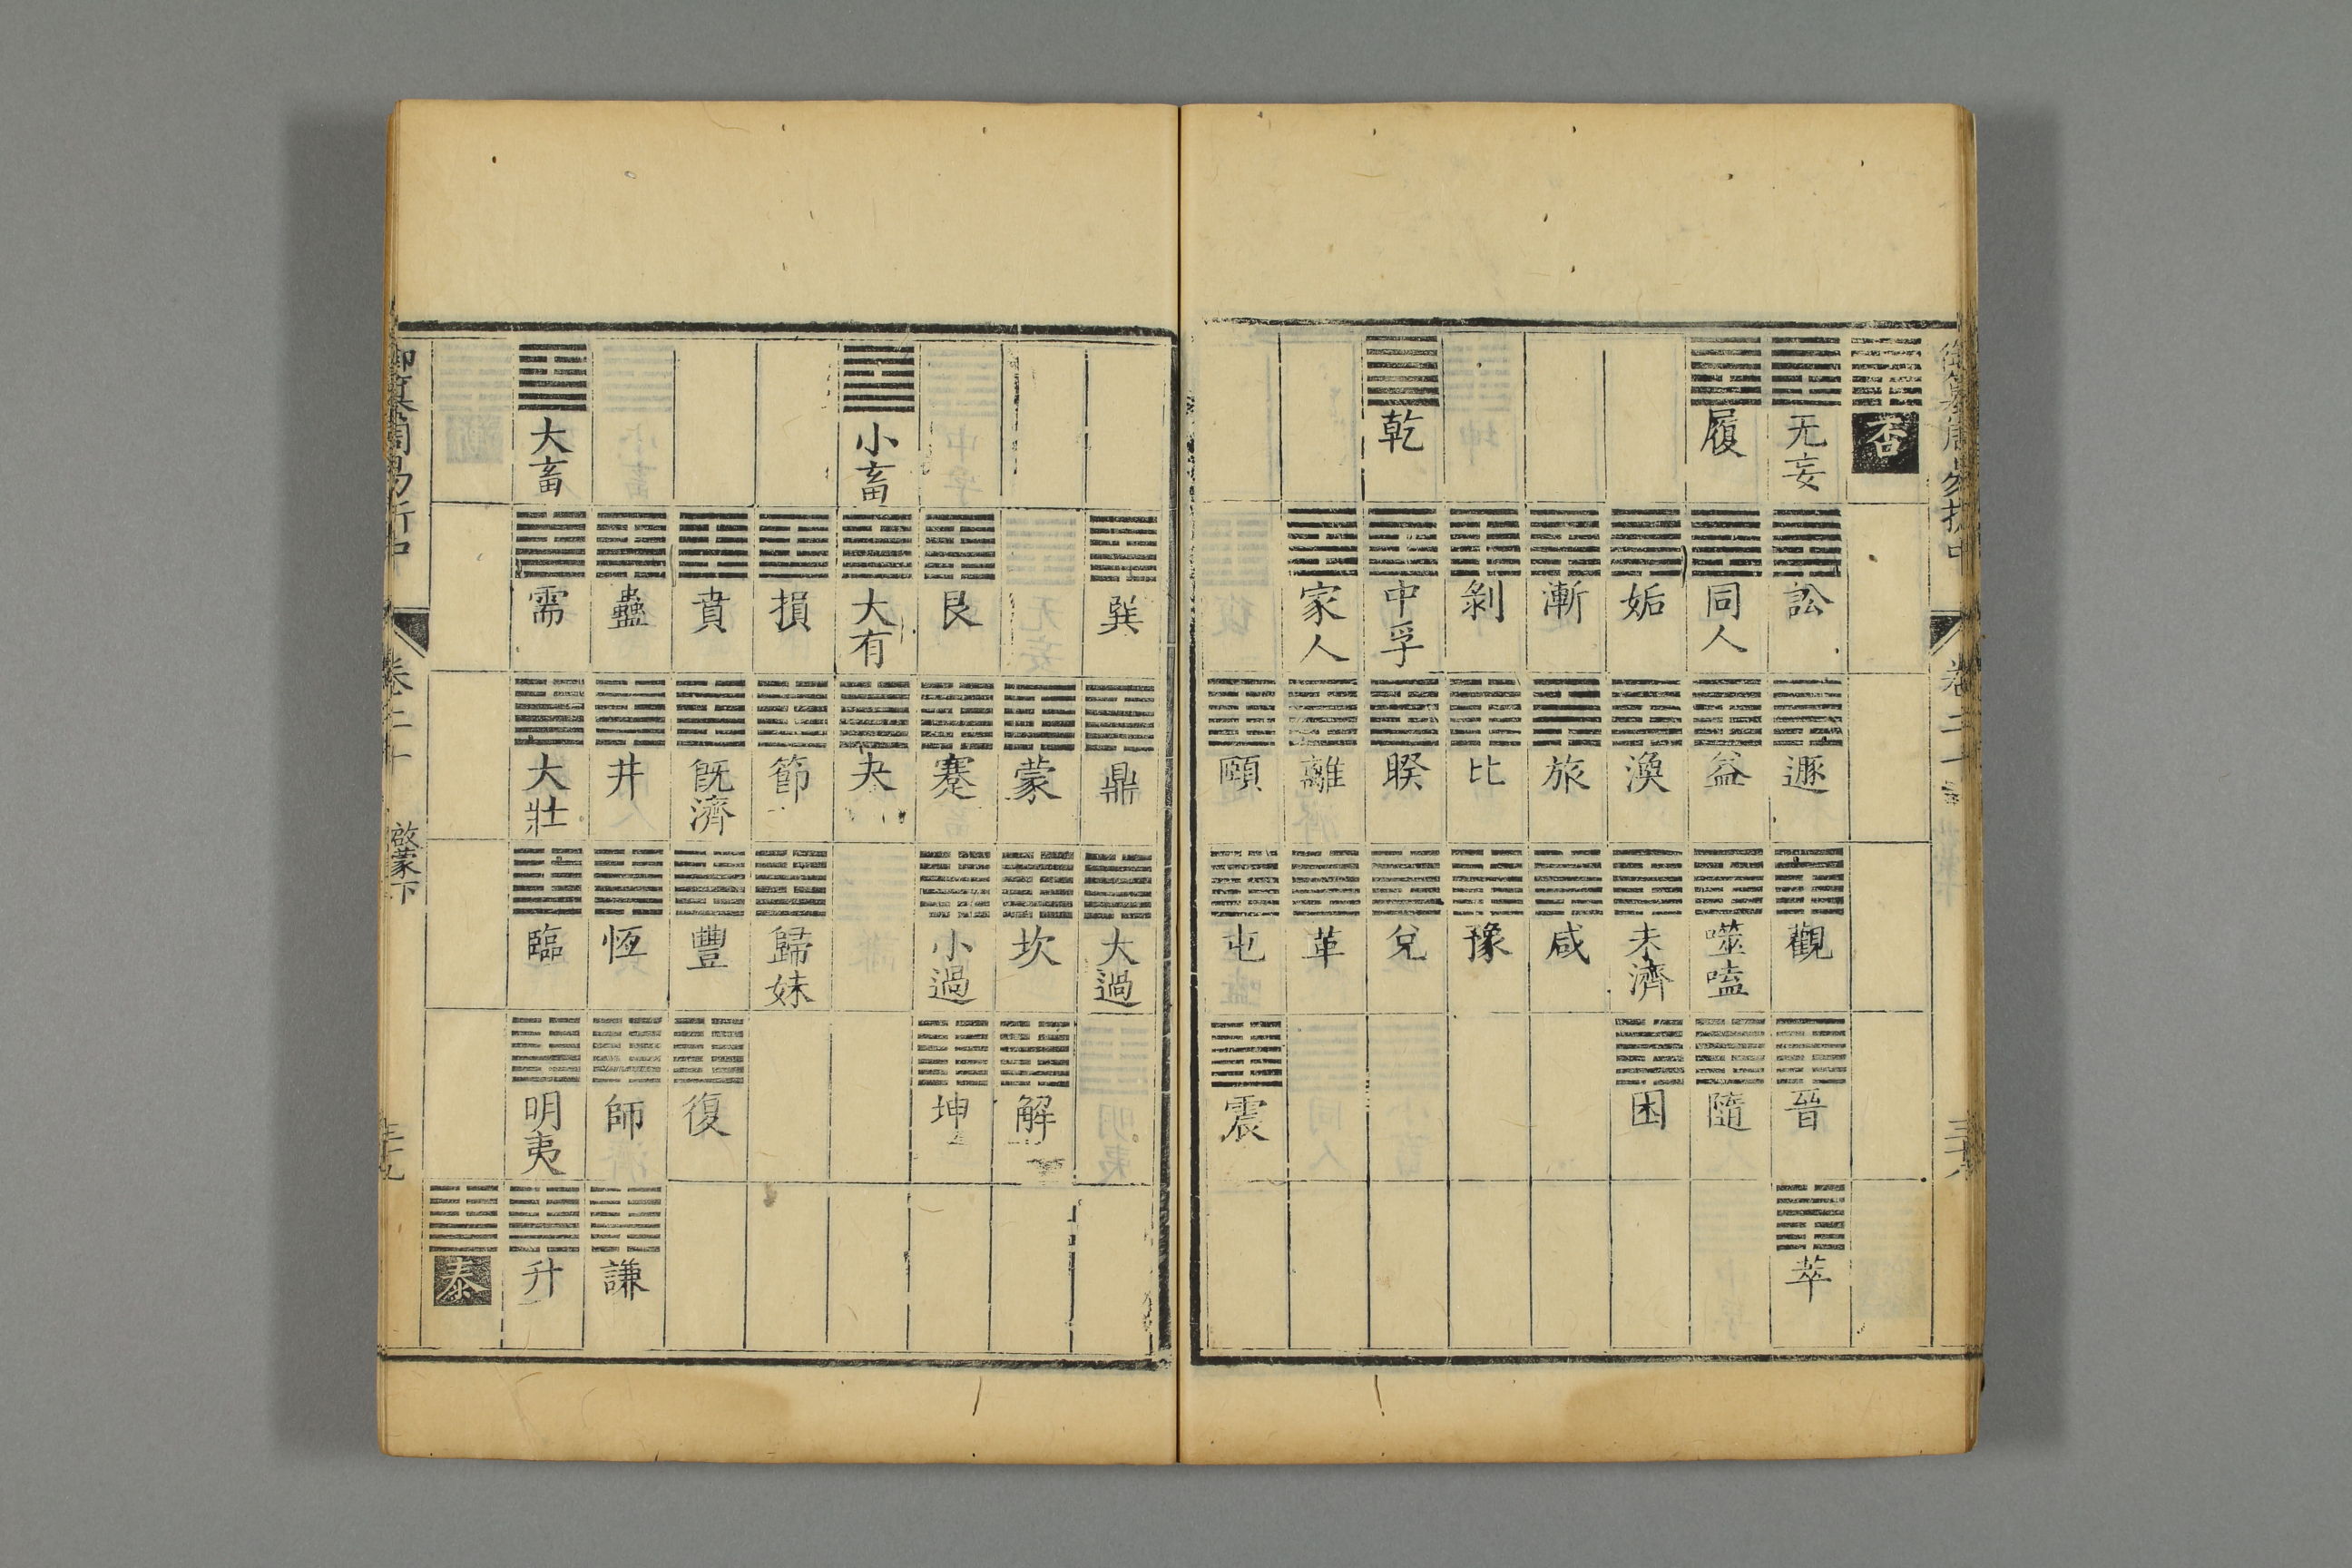 御纂周易折中
卷二十
三十八
否
无妄
訟
遯
觀
晉
萃
履
同人
益
噬嗑
隨
姤
渙
未濟
困
漸
旅
咸
剝
比
豫
乾
中孚
睽
兌
家人
離
革
頤
屯
震
巽
鼎
大過
蒙
坎
解
艮
蹇
小過
坤
小畜
大有
夬
損
節
歸妹
賁
既濟
豐
復
蠱
井
恆
師
謙
大畜
需
大壯
臨
明夷
升
泰
御纂周易折中
卷二十
啟蒙下
三十九